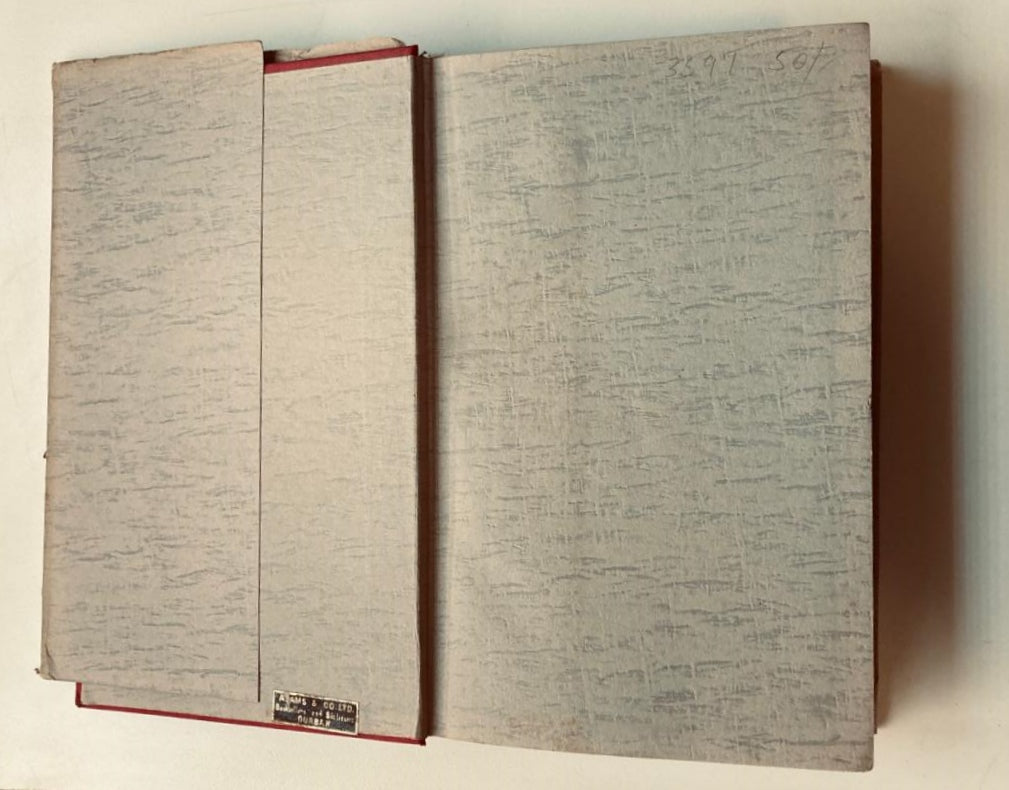 3397 50/-
ADAMS & CO. LTD.
Booksellers and Stationers
DURBAN